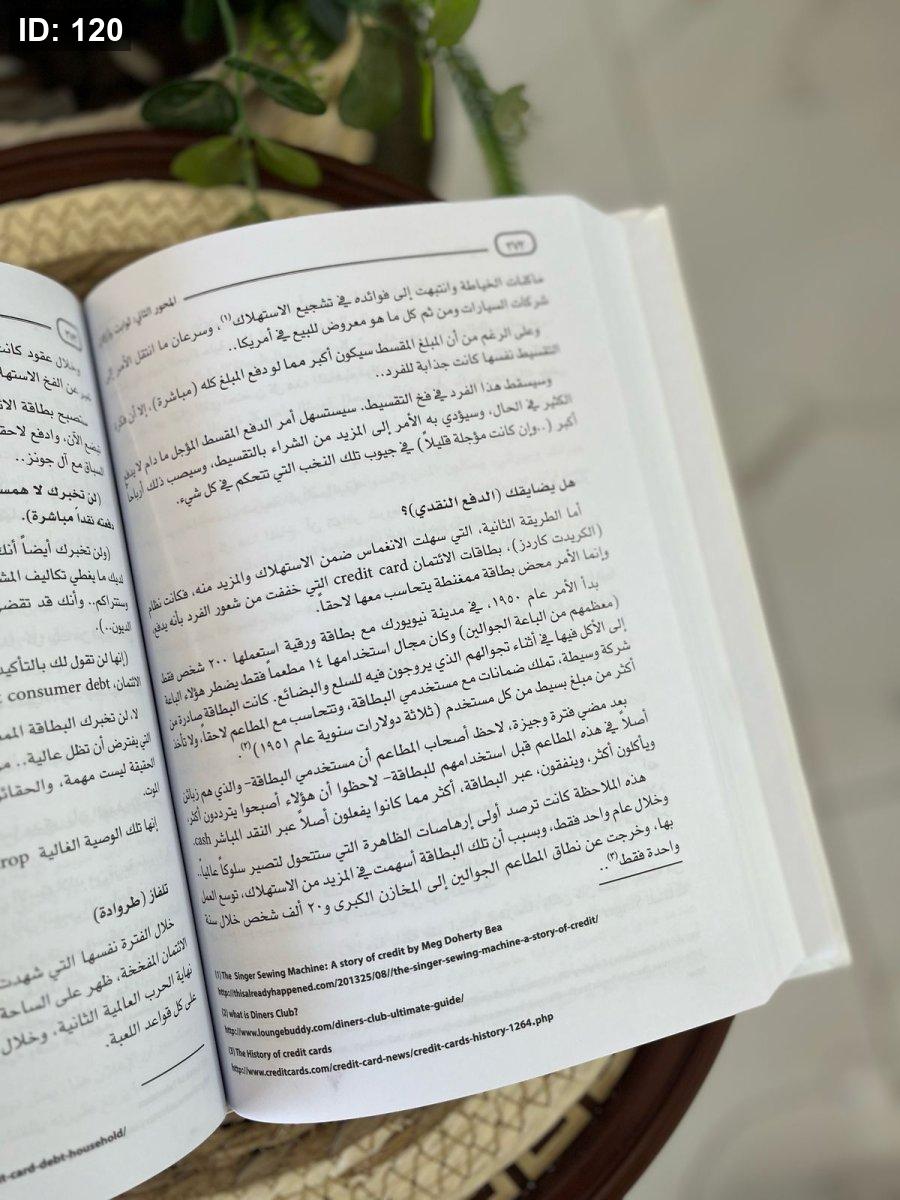 ID: 120
٢٧٢
المحور الثاني: ثوابت
ماكنات الخياطة وانتبهت إلى فوائده في تشجيع الاستهلاك(١)، وسرعان ما انتقل الأمر إلى
شركات السيارات ومن ثم كل ما هو معروض للبيع في أمريكا..
وعلى الرغم من أن المبلغ المقسط سيكون أكبر مما لو دفع المبلغ كله (مباشرة)، إلا أن فكرة
التقسيط نفسها كانت جذابة للفرد..
وسيسقط هذا الفرد في فخ التقسيط. سيستسهل أمر الدفع المقسط المؤجل ما دام لا يدفع
الكثير في الحال، وسيؤدي به الأمر إلى المزيد من الشراء بالتقسيط، وسيصب ذلك أرباحاً
أكبر (..وإن كانت مؤجلة قليلاً) في جيوب تلك النخب التي تتحكم في كل شيء.
هل يضايقك (الدفع النقدي)؟
أما الطريقة الثانية، التي سهلت الانغماس ضمن الاستهلاك والمزيد منه، فكانت نظام
(الكريدت كاردز)، بطاقات الائتمان credit card التي خففت من شعور الفرد بأنه يدفع،
وإنما الأمر محض بطاقة ممغنطة يتحاسب معها لاحقاً.
بدأ الأمر عام ١٩٥٠، في مدينة نيويورك مع بطاقة ورقية استعملها ٢٠٠ شخص فقط
(معظمهم من الباعة الجوالين) وكان مجال استخدامها ١٤ مطعماً فقط يضطر هؤلاء الباعة
إلى الأكل فيها في أثناء تجوالهم الذي يروجون فيه للسلع والبضائع. كانت البطاقة صادرة من
شركة وسيطة، تملك ضمانات مع مستخدمي البطاقة، وتتحاسب مع المطاعم لاحقاً، ولا تأخذ
أكثر من مبلغ بسيط من كل مستخدم (ثلاثة دولارات سنوية عام ١٩٥١)(٢).
بعد مضي فترة وجيزة، لاحظ أصحاب المطاعم أن مستخدمي البطاقة- والذي هم زبائن
أصلاً في هذه المطاعم قبل استخدامهم للبطاقة- لاحظوا أن هؤلاء أصبحوا يترددون أكثر،
ويأكلون أكثر، وينفقون، عبر البطاقة، أكثر مما كانوا يفعلون أصلاً عبر النقد المباشر cash.
هذه الملاحظة كانت ترصد أولى إرهاصات الظاهرة التي ستتحول لتصير سلوكاً عالمياً..
وخلال عام واحد فقط، وبسبب أن تلك البطاقة أسهمت في المزيد من الاستهلاك، توسع العمل
بها، وخرجت عن نطاق المطاعم الجوالين إلى المخازن الكبرى و٢٠ ألف شخص خلال سنة
واحدة فقط(٣)..
(1) The Singer Sewing Machine: A story of credit by Meg Doherty Bea
http://thisalreadyhappened.com/201325/08//the-singer-sewing-machine-a-story-of-credit/
(2) what is Diners Club?
http://www.loungebuddy.com/diners-club-ultimate-guide/
(3) The History of credit cards
http://www.creditcards.com/credit-card-news/credit-cards-history-1264.php
وخلال عقود كانت
عن الفخ الاستهلا
ستصبح بطاقة الا
الآن، وادفع لاحقا
السباق مع آل جونز..
(لن تخبرك لا همسا
دفعته نقداً مباشرة).
(ولن تخبرك أيضاً أنك
لديك ما يغطي تكاليف المش
وستتراكم.. وأنك قد تقضي
الديون..).
(إنها لن تقول لك بالتأكيد
الائتمان، consumer debt
لا. لن تخبرك البطاقة المم
التي يفترض أن تظل عالية..
الحقيقة ليست مهمة، والحقائق
الموت.
إنها تلك الوصية الغالية rop
تلفاز (طروادة)
خلال الفترة نفسها التي شهدت
الائتمان المفخخة، ظهر على الساحة
نهاية الحرب العالمية الثانية، وخلال
على كل قواعد اللعبة.
it-card-debt-household/